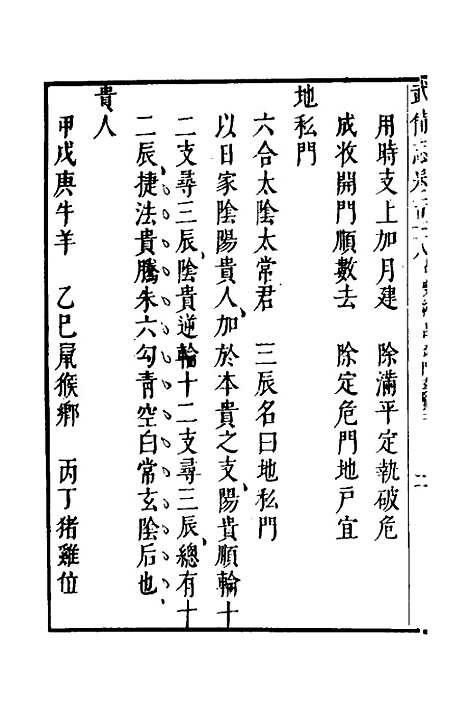 武備志卷一百七十八
用時支上加月建　除滿平定執破危
成收開門順數去　除定危門地戶宜
地私門
六合太陰太常君　三辰名曰地私門
以日家陰陽貴人加於本貴之支陽貴順輪十
二支尋三辰陰貴逆輪十二支尋三辰總有十
二辰捷法貴騰朱六勾青空白常玄陰后也
貴人
甲戊庚牛羊　乙巳鼠猴鄉　丙丁猪雞位